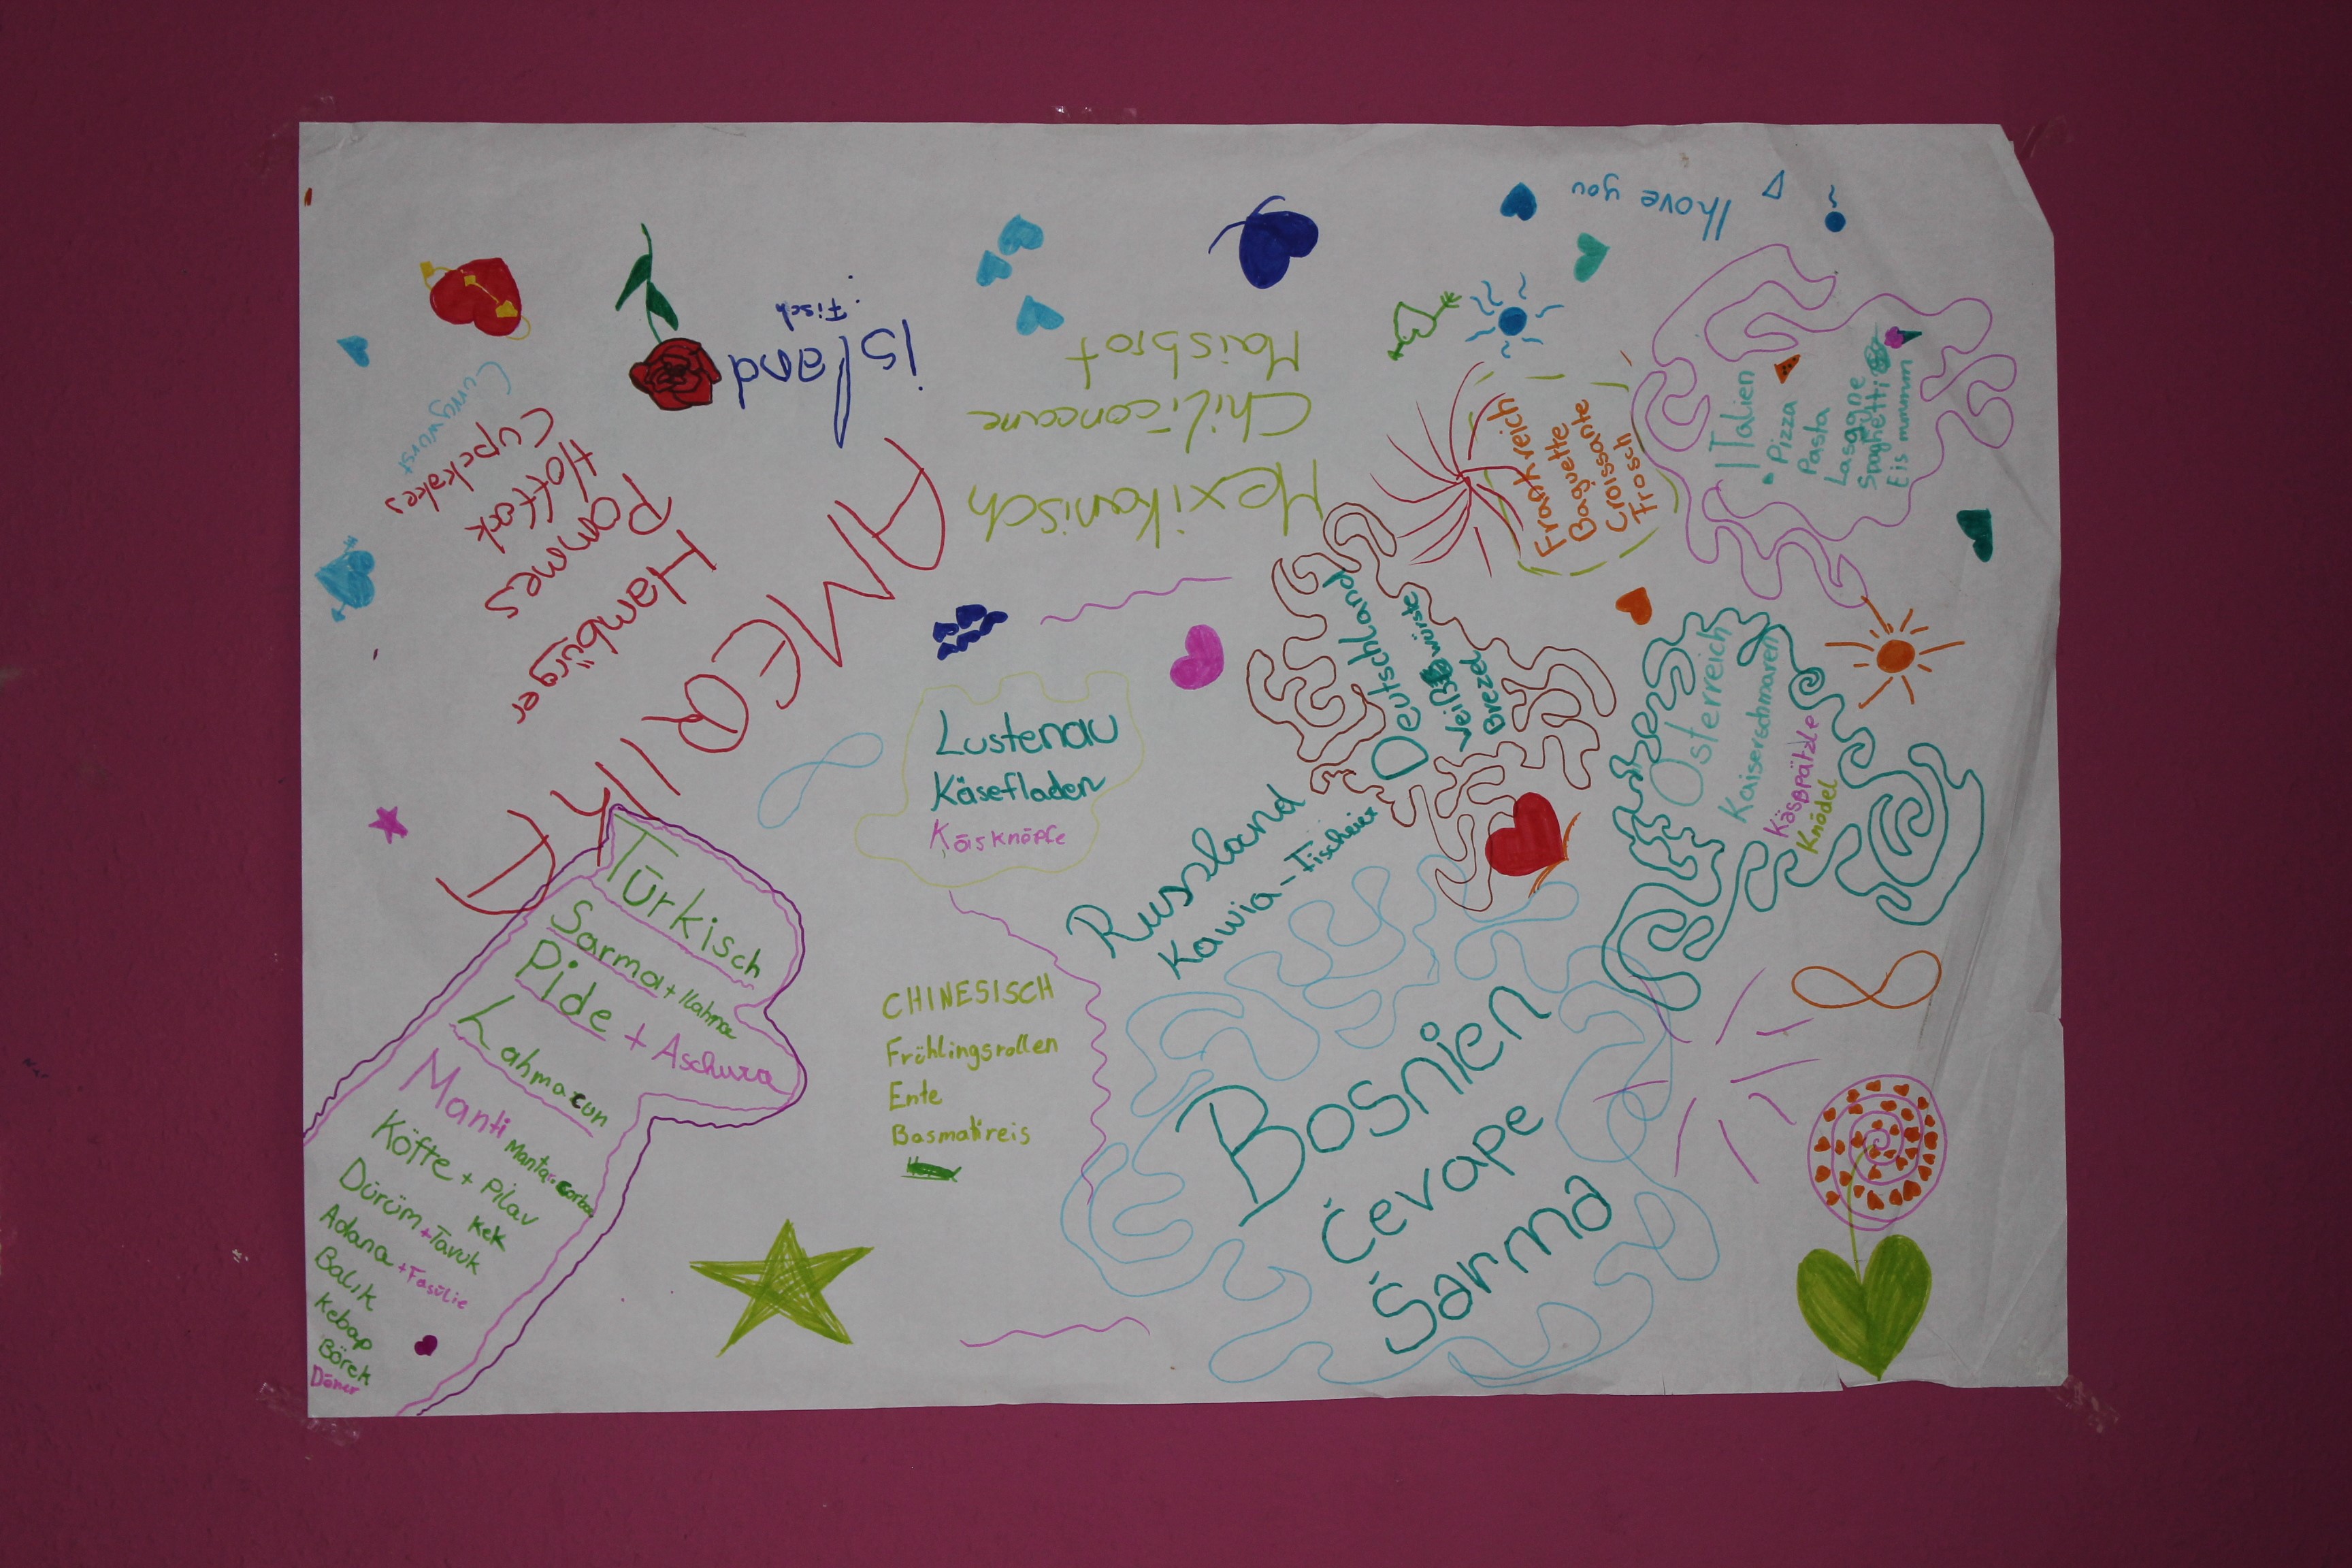 I love you
Island
Fisch
AMERIKA
Hambürger
Pommes
Hottock
Cupckakes
Currywurst
Mexikanisch
Chiliconcarne
Maisbrot
Frankreich
Baguette
Croissante
Frosch
ITalien
Pizza
Pasta
Lasagne
Spaghetti
Eis mmmm
Deutschland
Weißwürste
Brezel
Österreich
Kaiserschmarren
Kässpätzle
Knödel
Lustenau
Käsefladen
Käsknöpfe
Russland
Kawia-Fischeier
Türkisch
Sarma + Kahna
Pide + Aschura
Lahmacun
Manti
Köfte + Pilav
Kek
Dürüm + Tavuk
Adana + Fasülie
Balik
Kebap
Börek
Döner
CHINESISCH
Frühlingsrollen
Ente
Basmatireis
Bosnien
Čevape
Šarma